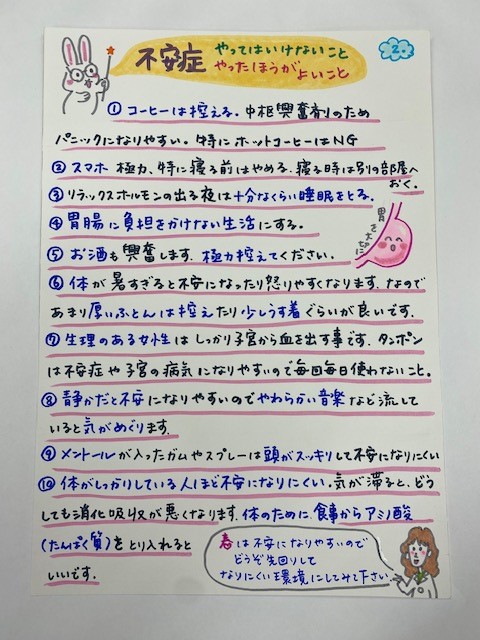 不安症 やってはいけないこと
やったほうがよいこと
2
① コーヒーは控える。中枢興奮剤のため
パニックになりやすい。特にホットコーヒーはNG
② スマホ 極力、特に寝る前はやめる。寝る時は別の部屋へ
おく。
③ リラックスホルモンの出る夜は十分なくらい睡眠をとる。
④ 胃腸に負担をかけない生活にする。
胃を大切に
⑤ お酒も興奮します。極力控えてください。
⑥ 体が暑すぎると不安になったり怒りやすくなります。なので
あまり厚いふとんは控えたり少しうす着ぐらいが良いです。
⑦ 生理のある女性はしっかり子宮から血を出す事です。タンポン
は不安症や子宮の病気になりやすいので毎回毎日使わないこと。
⑧ 静かだと不安になりやすいのでやわらかい音楽など流して
いると気がめぐります。
⑨ メントールが入ったガムやスプレーは頭がスッキリして不安になりにくい
⑩ 体がしっかりしている人ほど不安になりにくい。気が滞ると、どう
しても消化吸収が悪くなります。体のために、食事からアミノ酸
(たんぱく質)をとり入れると
いいです。
春は不安になりやすいので
どうぞ先回りして
なりにくい環境にしてみて下さい